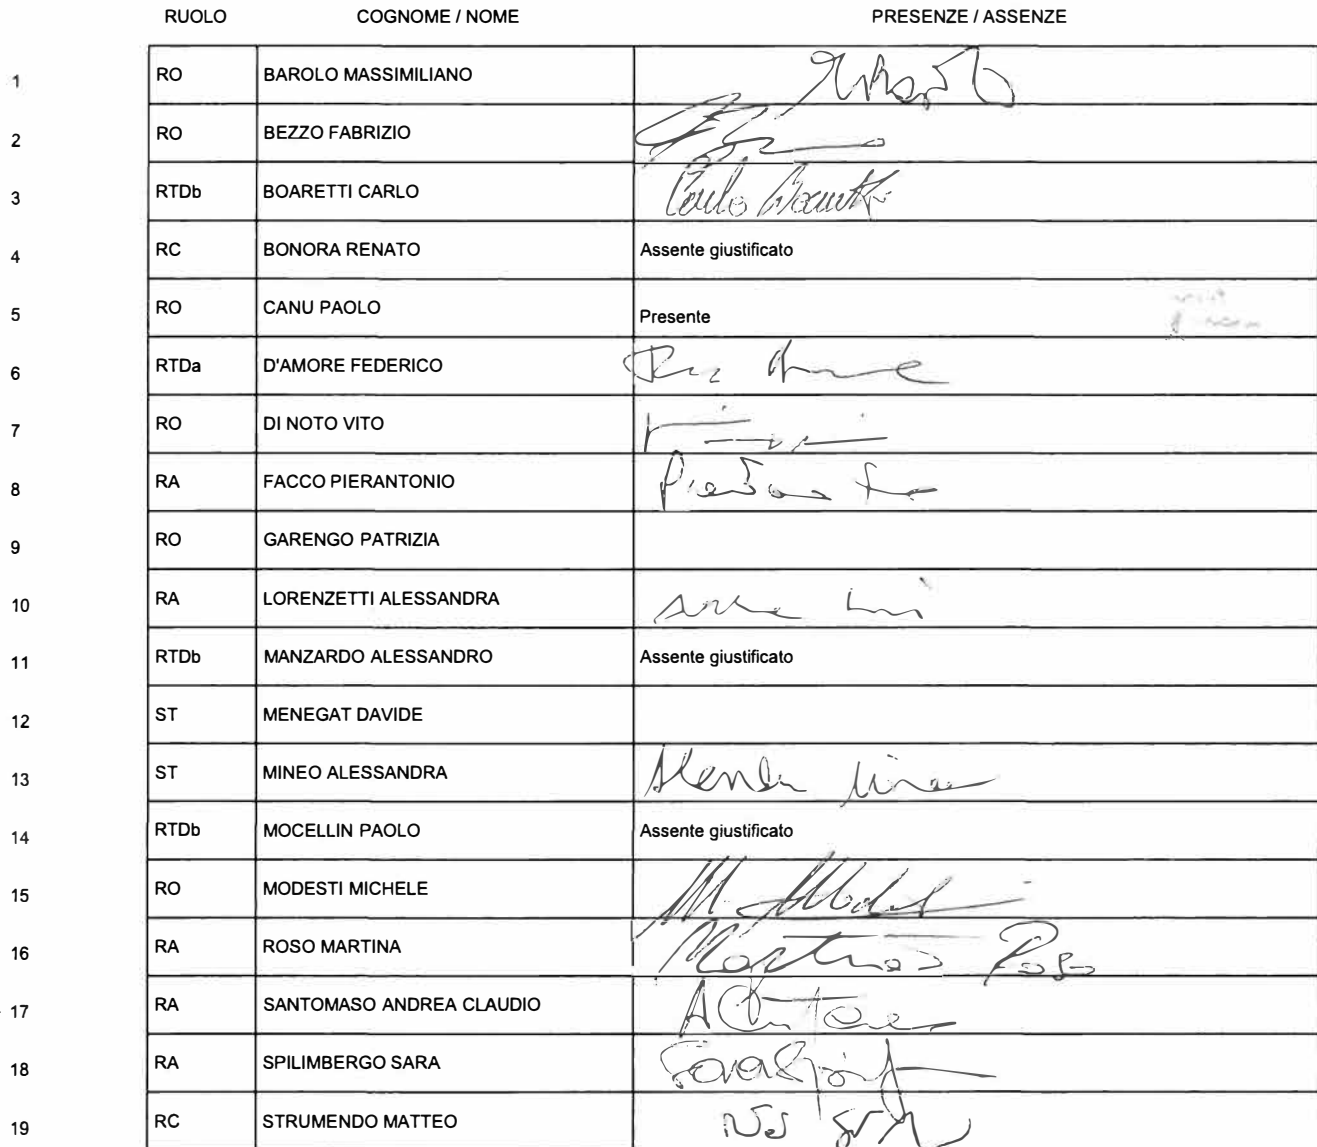 RUOLO COGNOME / NOME PRESENZE / ASSENZE
1 RO BAROLO MASSIMILIANO
2 RO BEZZO FABRIZIO
3 RTDb BOARETTI CARLO Carlo Boaretti
4 RC BONORA RENATO Assente giustificato
5 RO CANU PAOLO Presente
6 RTDa D'AMORE FEDERICO
7 RO DI NOTO VITO
8 RA FACCO PIERANTONIO
9 RO GARENGO PATRIZIA
10 RA LORENZETTI ALESSANDRA
11 RTDb MANZARDO ALESSANDRO Assente giustificato
12 ST MENEGAT DAVIDE
13 ST MINEO ALESSANDRA
14 RTDb MOCELLIN PAOLO Assente giustificato
15 RO MODESTI MICHELE
16 RA ROSO MARTINA Martina Roso
17 RA SANTOMASO ANDREA CLAUDIO
18 RA SPILIMBERGO SARA
19 RC STRUMENDO MATTEO